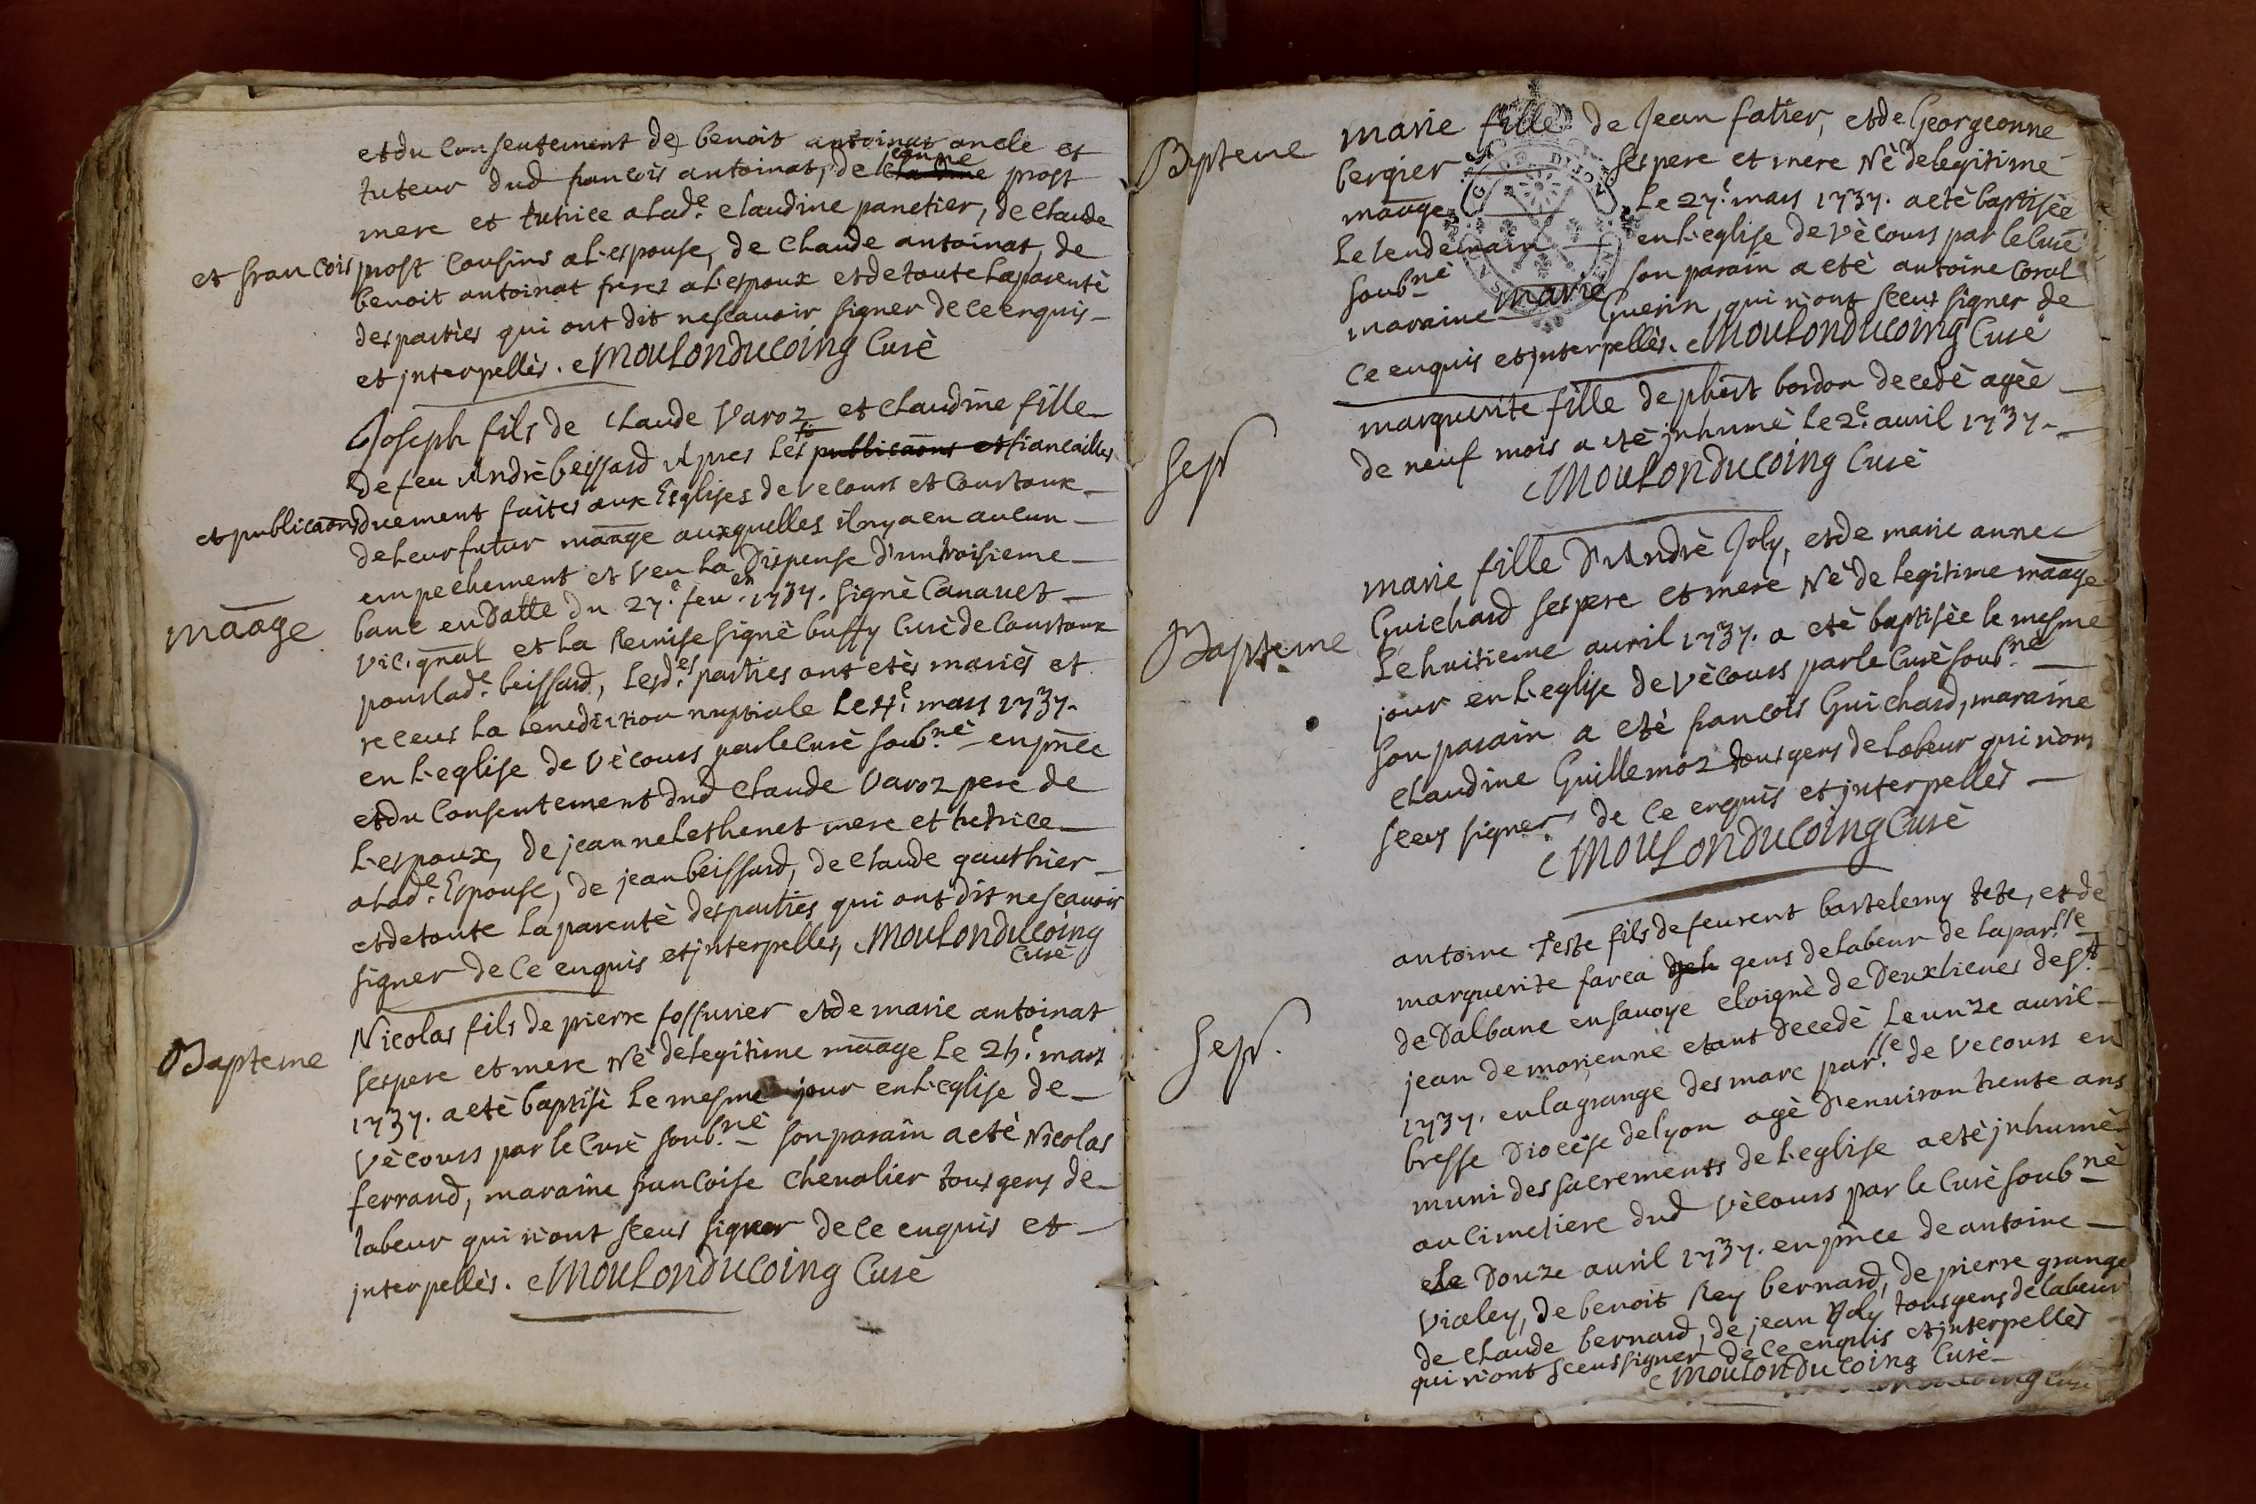 et du consentement de benoit antoinat oncle et
tuteur dud francois antoinat, de claudine jeanne prost
mere et tutrice a lad.e claudine panetier, de claude
et francois prost cousins a l'espouse, de claude antoinat, de
benoit antoinat freres a l'espoux et de toute la parentè
des partiès qui ont dit ne scauoir signer de ce enquis
et jnterpellès. Moulonducoing Curè
Joseph fils de claude Varoz et claudine fille
de feu Andrè beissard Apres les publicaõns et fiancailles
et publicaõns duement faites aux Esglises de vecours et Coustoux
de leur futur maãge auxquelles il ny a eu aucun
empechement et veu la Dispense d'un troisieme
maãge
banc en Datte du 27.e feu.er 1737. signè Canauet
vic. gnal et la Remise signè buffy Curè de Coustoux
pour lad.e beissard, lesd.es parties ont etès mariès et
receus la benediction nuptiale le 4.e mars 1737.
en l'eglise de vècours par le Curè soub.nè en pñce
et du Consentement dud claude Varoz pere de
l'espoux, de jeanne lethenet mere et tutrice
a lad.e Espouse, de jean beissard, de claude gauthier
et de toute la parentè des partiès qui ont dit ne scauoir
signer de ce enquis et jnterpelles, Moulonducoing
Curè
Bapteme
Nicolas fils de pierre fossurier et de marie antoinat
ses pere et mere Nè de legitime maãge le 25.e mars
1737. a etè baptisè le mesme jour en l'eglise de
vècours par le Curè soub.nè son parain a etè Nicolas
ferrand, maraine francoise chevalier tous gens de
labeur qui n'ont sceus signer de ce enquis et
jnterpellès. Moulonducoing Curè
Bapteme
marie fille de Jean fatier, et de Georgeonne
bergier ses pere et mere Nè de legitime
maãge le 27.e mars 1737. a etè baptisèe
le lendemain en l'eglise de vècours par le Curè
soub.nè son parain a etè antoine Coral
maraine marie Guerin qui n'ont sceus signer de
ce enquis et jnterpellès. Moulonducoing Curè
Sepr
marguerite fille de phbert bordon decedè agèe
de neuf mois a etè jnhumè le 2.e auril 1737.
Moulonducoing Curè
Bapteme
marie fille d'Andrè Joly, et de marie anne
Guichard ses pere et mere Nè de legitime maãge
le huitieme auril 1737. a etè baptisèe le mesme
jour en l'eglise de vècours par le Curè soub.nè
son parain a etè francois Guichard, maraine
claudine Guillemoz tous gens de labeur qui n'ons
sceus signer de ce enquis et jnterpellès
Moulonducoing Curè
Sepr.
antoine Teste fils de feu rent bartelemy tete, et dè
marguerite farca gens de labeur de la par.sse
de Dalbane en sauoye eloignè de Deux lieues de s.t
jean de morienne etant decedè le unze auril
1737. en la grange des marc par.sse de vecours en
bresse Diocèse de lyon agè d'enuiron trente ans
muni des sacrements de l'eglise a etè jnhumè
au cimetiere dud vècours par le Curè soub.nè
le Douze auril 1737. en pñce de antoine
vialey, de benoit Rey bernard, de pierre grange
de claude bernard, de jean Joly tous gens de labeur
qui n'ont sceus signer de ce enquis et jnterpellès
Moulonducoing Curè